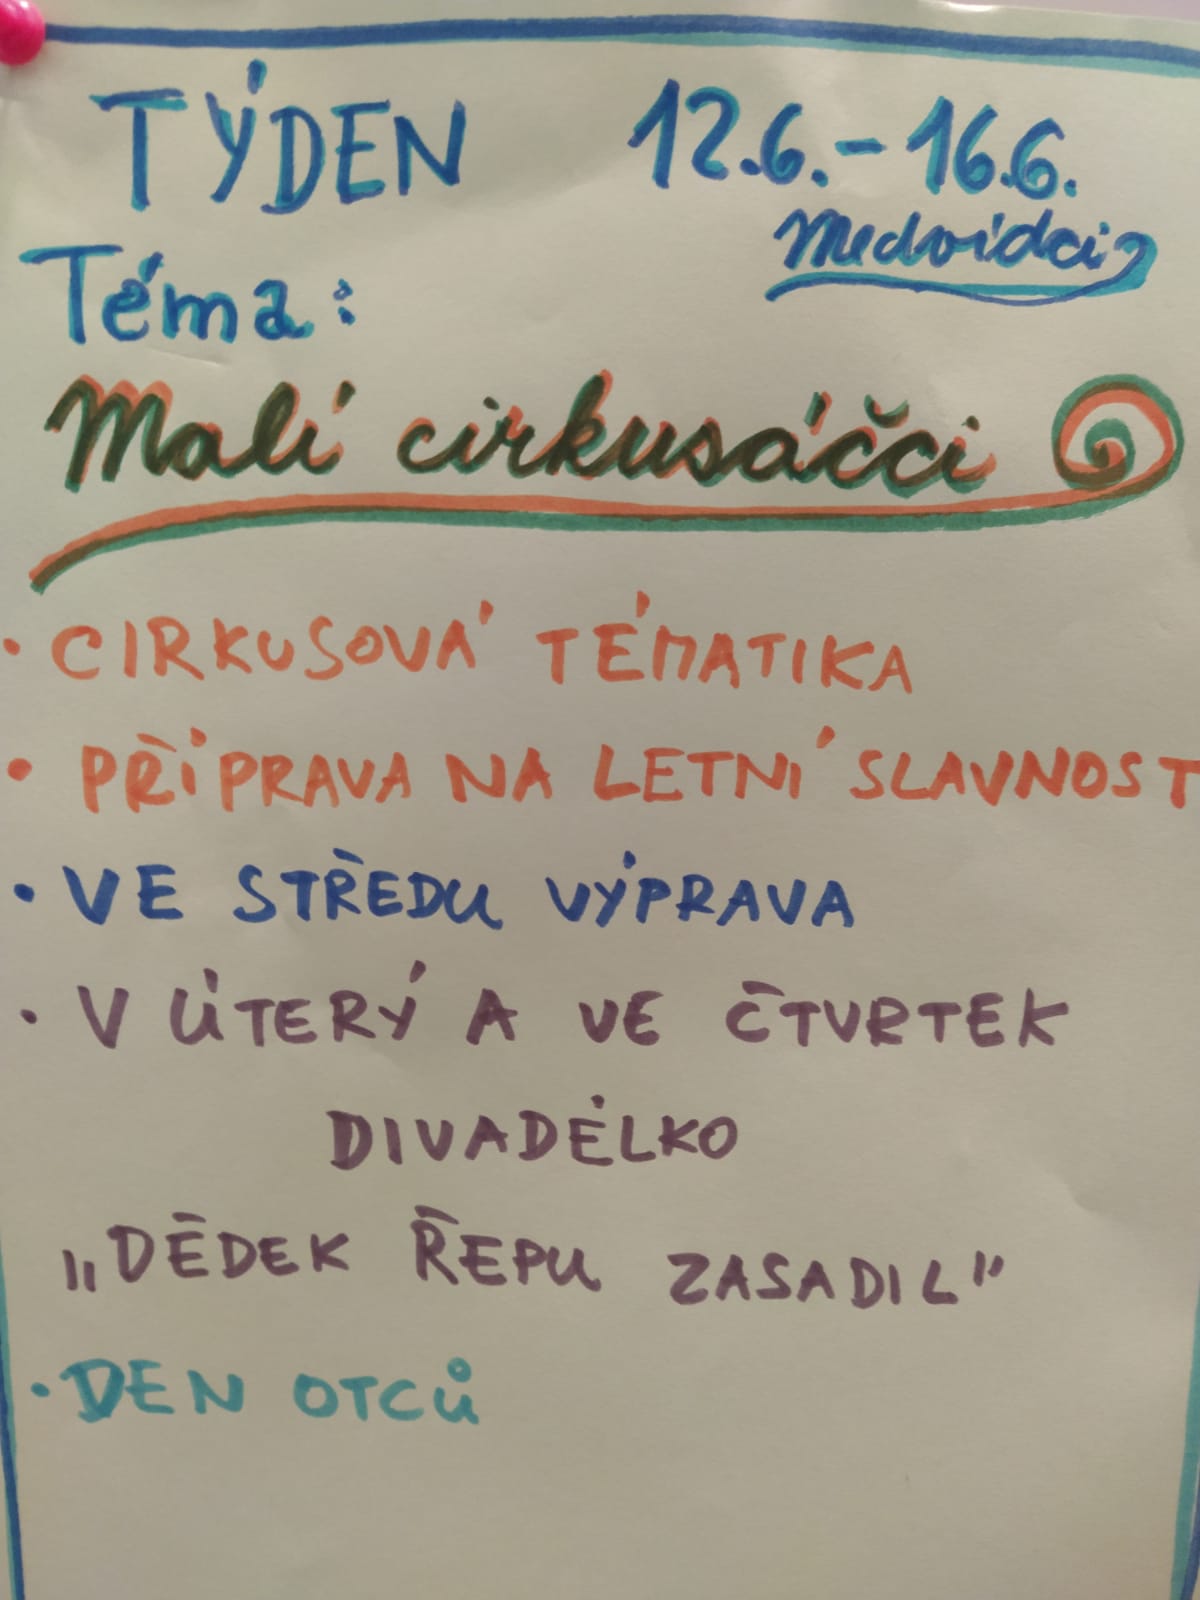 TÝDEN 12.6.-16.6.
Medvídci
Téma:
Malí cirkusáčci
• CIRKUSOVÁ TÉMATIKA
• PŘÍPRAVA NA LETNÍ SLAVNOST
• VE STŘEDU VÝPRAVA
• V ÚTERÝ A VE ČTVRTEK
DIVADÉLKO
„DĚDEK ŘEPU ZASADIL"
• DEN OTCŮ